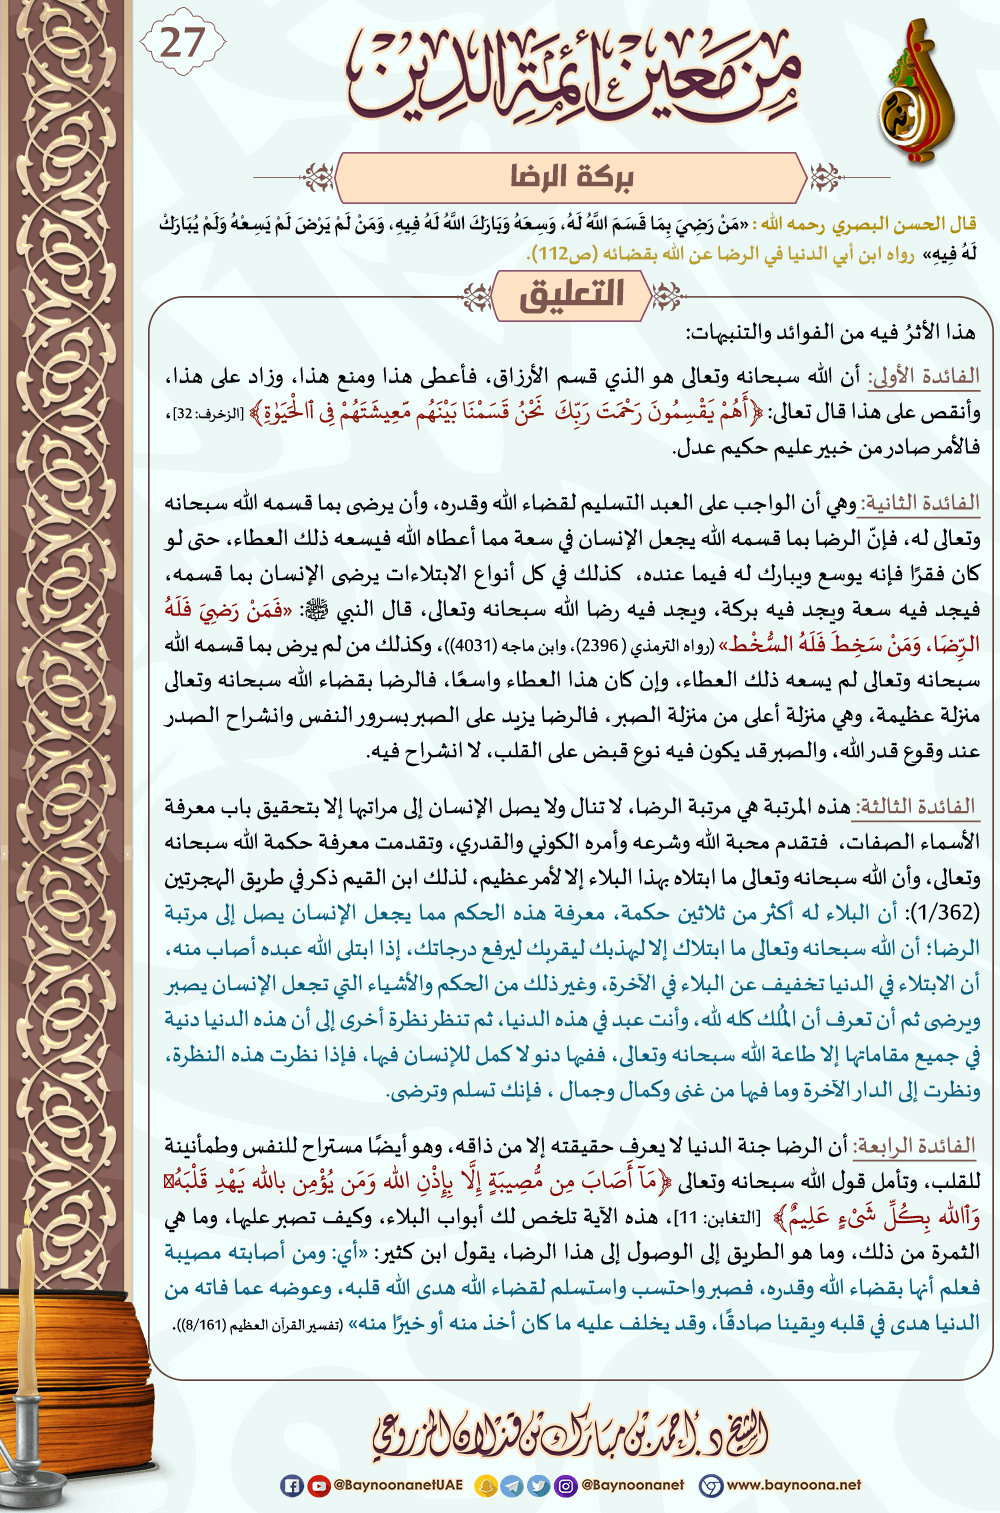 27
من معين أئمة الدين
بركة الرضا
قال الحسن البصري رحمه الله : «مَنْ رَضِيَ بِمَا قَسَمَ اللَّهُ لَهُ، وَسِعَهُ وَبَارَكَ اللَّهُ لَهُ فِيهِ، وَمَنْ لَمْ يَرْضَ لَمْ يَسِعْهُ وَلَمْ يُبَارَكْ
لَهُ فِيهِ» رواه ابن أبي الدنيا في الرضا عن الله بقضائه (ص112).
التعليق
هذا الأثرُ فيه من الفوائد والتنبيهات:
الفائدة الأولى: أن الله سبحانه وتعالى هو الذي قسم الأرزاق، فأعطى هذا ومنع هذا، وزاد على هذا،
وأنقص على هذا قال تعالى: ﴿أَهُمْ يَقْسِمُونَ رَحْمَتَ رَبِّكَ نَحْنُ قَسَمْنَا بَيْنَهُم مَّعِيشَتَهُمْ فِى ٱلْحَيَوٰةِ﴾ [الزخرف: 32]،
فالأمر صادر من خبير عليم حكيم عدل.
الفائدة الثانية: وهي أن الواجب على العبد التسليم لقضاء الله وقدره، وأن يرضى بما قسمه الله سبحانه
وتعالى له، فإنّ الرضا بما قسمه الله يجعل الإنسان في سعة مما أعطاه الله فيسعه ذلك العطاء، حتى لو
كان فقرًا فإنه يوسع ويبارك له فيما عنده، كذلك في كل أنواع الابتلاءات يرضى الإنسان بما قسمه،
فيجد فيه سعة ويجد فيه بركة، ويجد فيه رضا الله سبحانه وتعالى، قال النبي ﷺ: «فَمَنْ رَضِيَ فَلَهُ
الرِّضَا، وَمَنْ سَخِطَ فَلَهُ السُّخْط» (رواه الترمذي ( 2396)، وابن ماجه (4031))، وكذلك من لم يرض بما قسمه الله
سبحانه وتعالى لم يسعه ذلك العطاء، وإن كان هذا العطاء واسعًا، فالرضا بقضاء الله سبحانه وتعالى
منزلة عظيمة، وهي منزلة أعلى من منزلة الصبر، فالرضا يزيد على الصبر بسرور النفس وانشراح الصدر
عند وقوع قدر الله، والصبر قد يكون فيه نوع قبض على القلب، لا انشراح فيه.
الفائدة الثالثة: هذه المرتبة هي مرتبة الرضا، لا تنال ولا يصل الإنسان إلى مراتبها إلا بتحقيق باب معرفة
الأسماء الصفات، فتقدم محبة الله وشرعه وأمره الكوني والقدري، وتقدمت معرفة حكمة الله سبحانه
وتعالى، وأن الله سبحانه وتعالى ما ابتلاه بهذا البلاء إلا لأمر عظيم، لذلك ابن القيم ذكر في طريق الهجرتين
(1/362): أن البلاء له أكثر من ثلاثين حكمة، معرفة هذه الحكم مما يجعل الإنسان يصل إلى مرتبة
الرضا؛ أن الله سبحانه وتعالى ما ابتلاك إلا ليهذبك ليقربك ليرفع درجاتك، إذا ابتلى الله عبده أصاب منه،
أن الابتلاء في الدنيا تخفيف عن البلاء في الآخرة، وغير ذلك من الحكم والأشياء التي تجعل الإنسان يصبر
ويرضى ثم أن تعرف أن المُلك كله لله، وأنت عبد في هذه الدنيا، ثم تنظر نظرة أخرى إلى أن هذه الدنيا دنية
في جميع مقاماتها إلا طاعة الله سبحانه وتعالى، ففيها دنو لا كمل للإنسان فيها، فإذا نظرت هذه النظرة،
ونظرت إلى الدار الآخرة وما فيها من غنى وكمال وجمال ، فإنك تسلم وترضى.
الفائدة الرابعة: أن الرضا جنة الدنيا لا يعرف حقيقته إلا من ذاقه، وهو أيضًا مستراح للنفس وطمأنينة
للقلب، وتأمل قول الله سبحانه وتعالى ﴿مَآ أَصَابَ مِن مُّصِيبَةٍ إِلَّا بِإِذْنِ الله وَمَن يُؤْمِن بالله يَهْدِ قَلْبَهُ
وَٱلله بِكُلِّ شَىْءٍ عَلِيمٌ﴾ [التغابن: 11]، هذه الآية تلخص لك أبواب البلاء، وكيف تصبر عليها، وما هي
الثمرة من ذلك، وما هو الطريق إلى الوصول إلى هذا الرضا، يقول ابن كثير: «أي: ومن أصابته مصيبة
فعلم أنها بقضاء الله وقدره، فصبر واحتسب واستسلم لقضاء الله هدى الله قلبه، وعوضه عما فاته من
الدنيا هدى في قلبه ويقينا صادقًا، وقد يخلف عليه ما كان أخذ منه أو خيرًا منه» (تفسير القرآن العظيم (8/161)).
الشيخ د. أحمد بن مبارك بن قذلان المزروعي
@BaynoonanetUAE @Baynoonanet www.baynoona.net